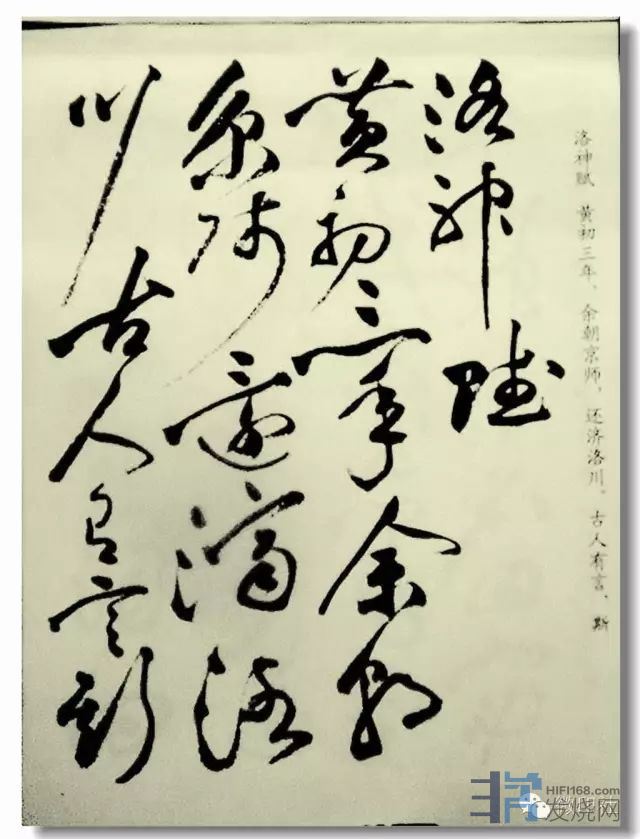 洛神賦
黄初三年余朝
京师還濟洛
川古人有言斯
洛神赋 黄初三年，余朝京师，还济洛川。古人有言，斯
HIFI168.com
发烧网